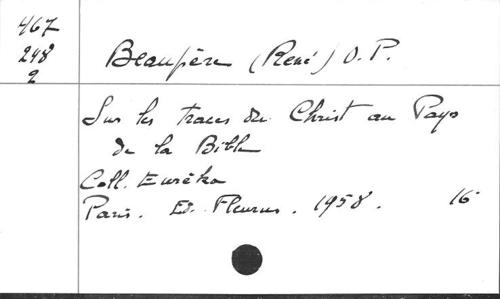 467
248
2
Beaupère (René) O.P.
Sur les traces du Christ au Pays
de la Bible
Coll. Eurêka
Paris. Ed. Fleurus. 1958. 16